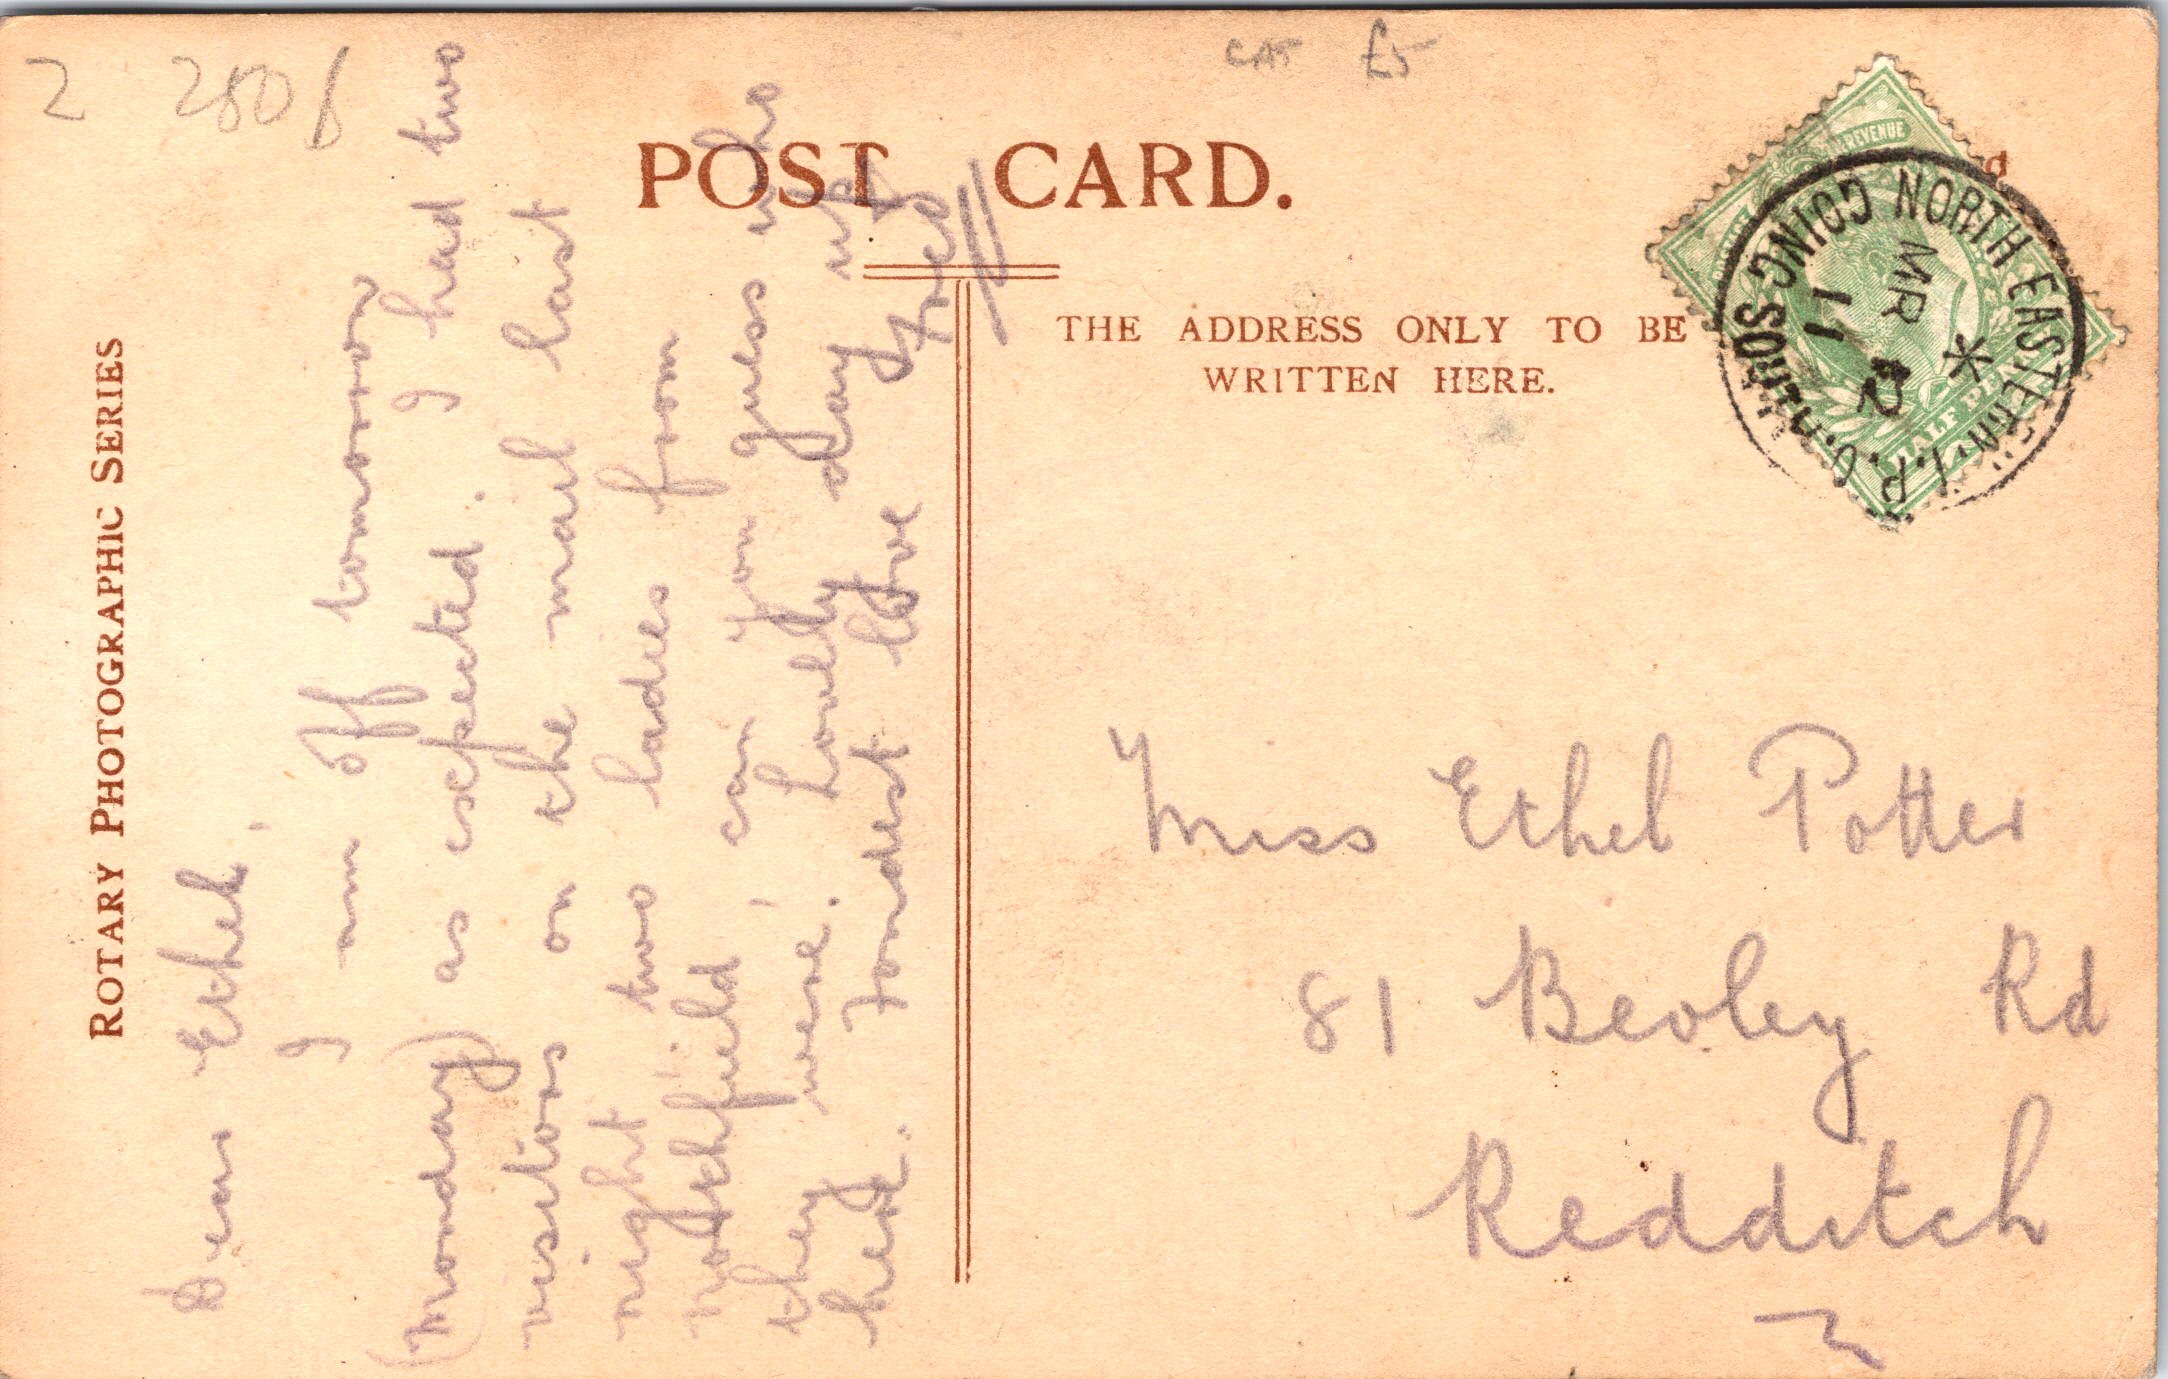 2 280 f
CAT £5
POST CARD.
ROTARY PHOTOGRAPHIC SERIES
THE ADDRESS ONLY TO BE
WRITTEN HERE.
REVENUE
HALF PE
NORTH EASTERN T.P.O. GOING SOUTH
MR 11
12
Dear Ethel,
I am off tomorrow
(Monday) as expected. I had two
visitors on the mail last
night two ladies from
Northfield, can you guess who
they were. Lovely day up
here. Fondest love Fred
Miss Ethel Potter
81 Beoley Rd
Redditch